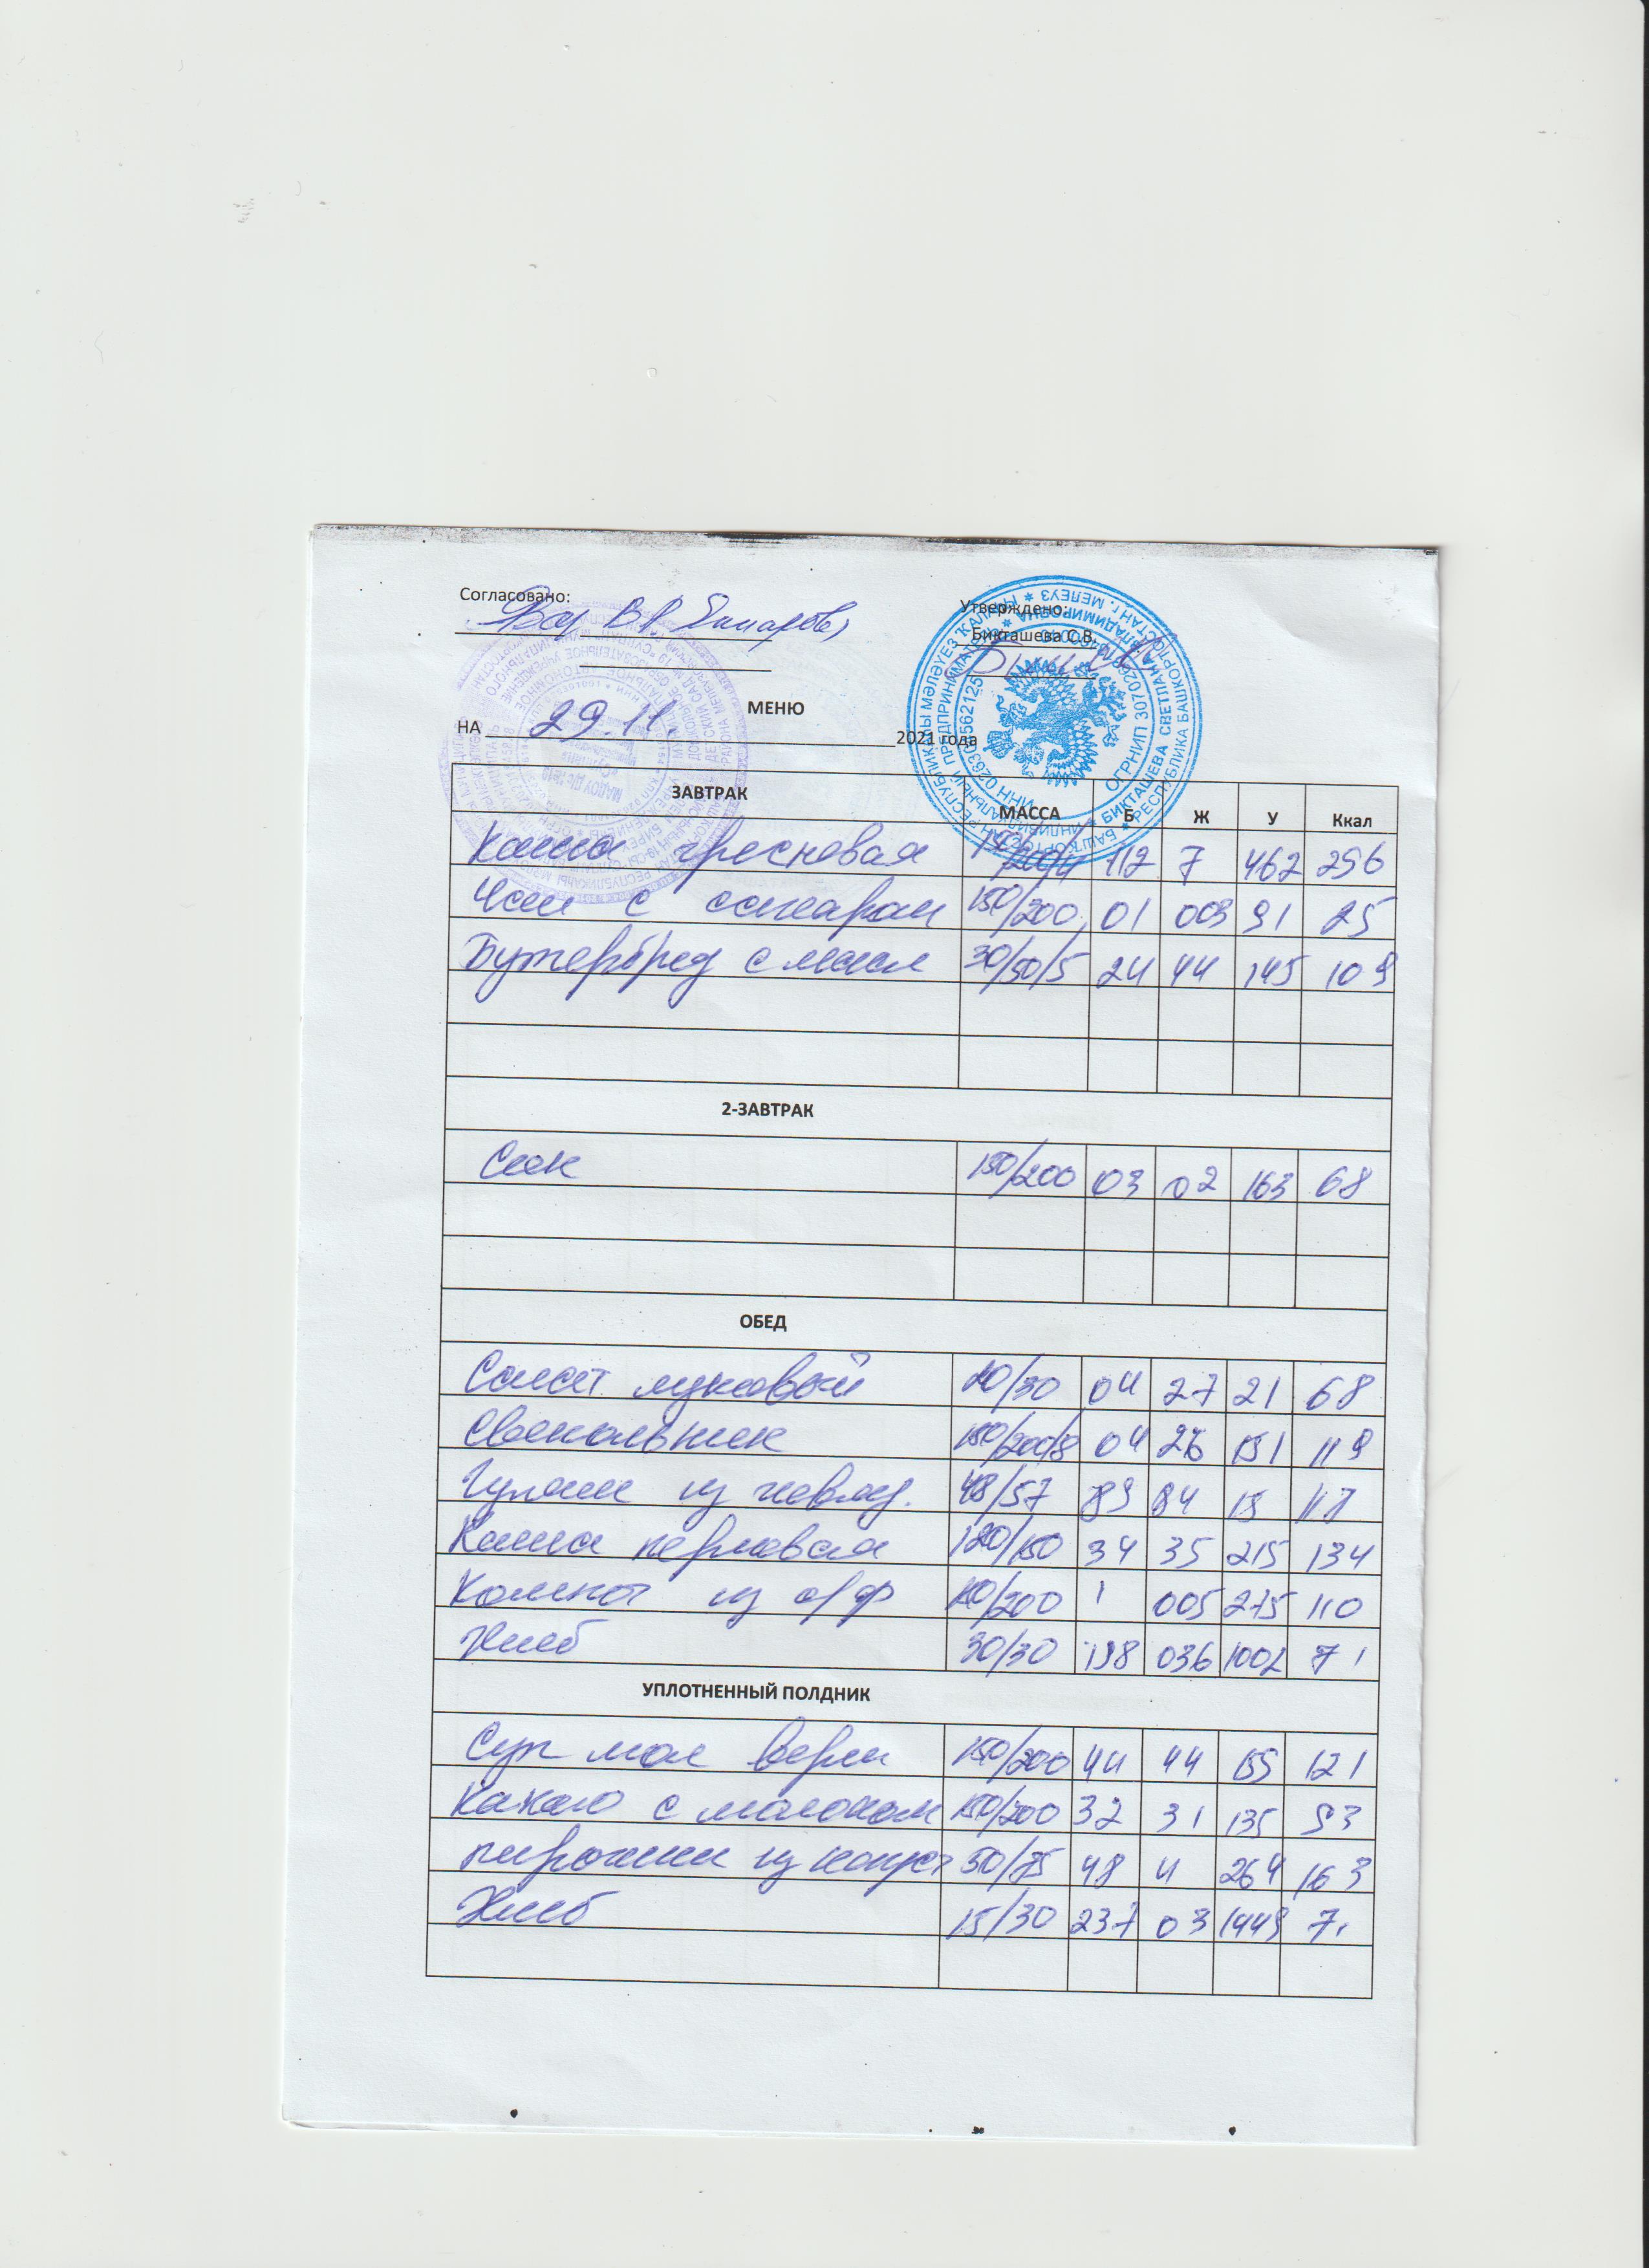 Согласовано:
Утверждено:
Бикташева С.В.
МЕНЮ
НА 29.11. 2021 года
ЗАВТРАК МАССА Б Ж У Ккал
Каша гречневая 112 7 462 256
Чай с сахаром 150/200 01 003 91 25
Бутерброд с масл 30/50/5 24 44 145 109
2-ЗАВТРАК
Сок 150/200 03 02 163 68
ОБЕД
Салат луковый 20/30 04 27 21 68
Свекольник 150/200/8 04 26 151 119
Гуляш из говяд. 48/57 89 84 117
Каша перловая 120/150 34 35 215 134
Компот из с/ф 200 1 005 275 110
Хлеб 30/30 198 036 1002 71
УПЛОТНЕННЫЙ ПОЛДНИК
Суп мол верм 150/200 44 44 155 121
Какао с молоком 150/200 32 31 135 93
пирожки из капуст 50/75 48 4 264 163
Хлеб 15/30 237 03 1449 71